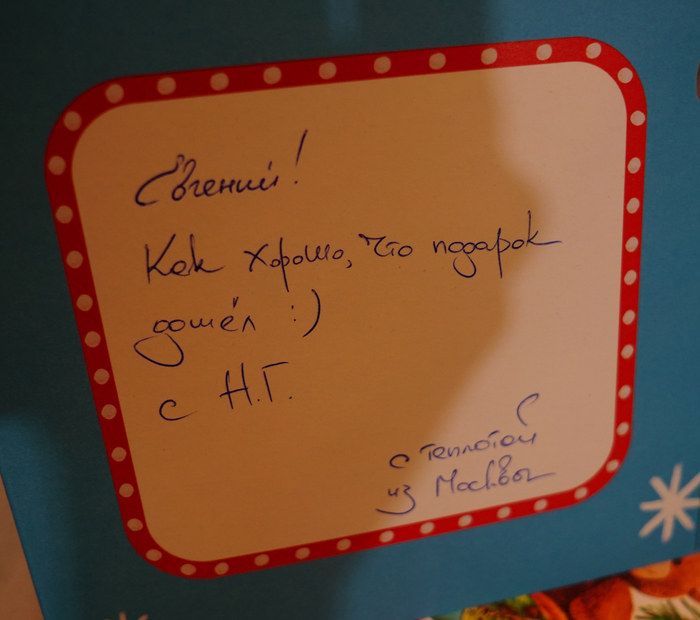 Евгений!
Как хорошо, что подарок
дошёл :)
с Н.Г.
с теплотой
из Москвы